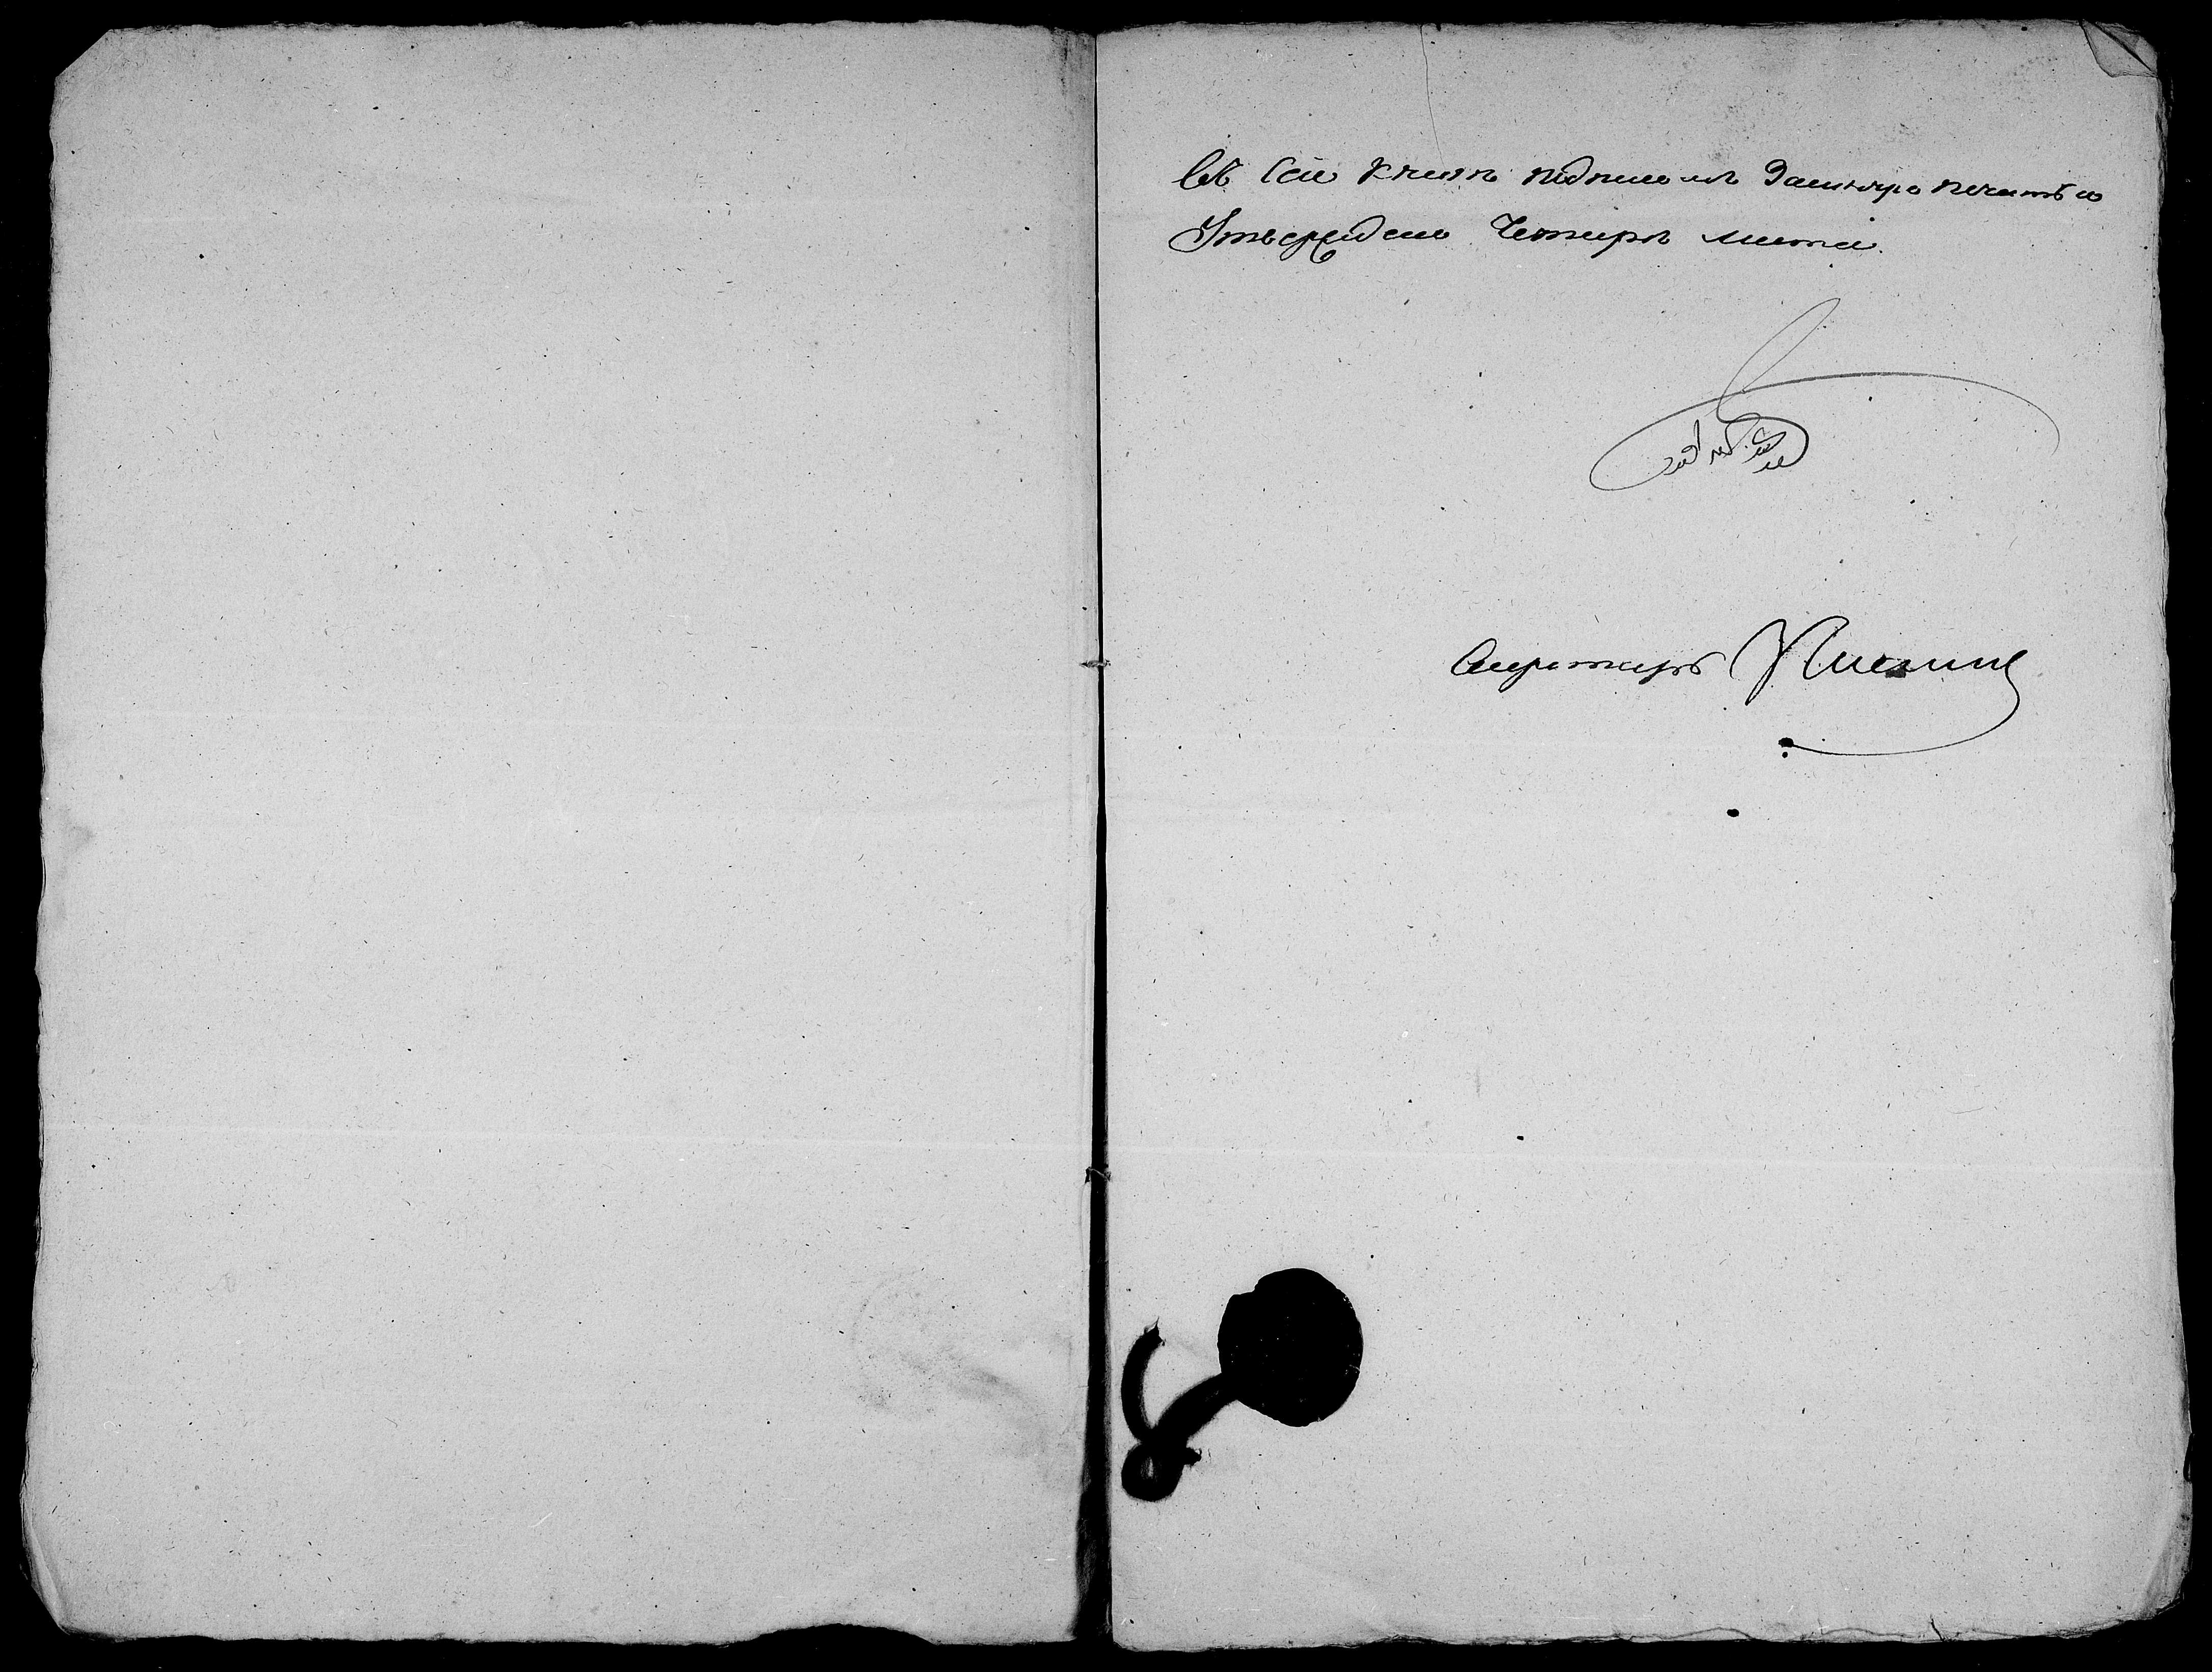 въ сей книгѣ подписомъ Зашнуро печатью
Утверждено Четыре листа.
Секретарь